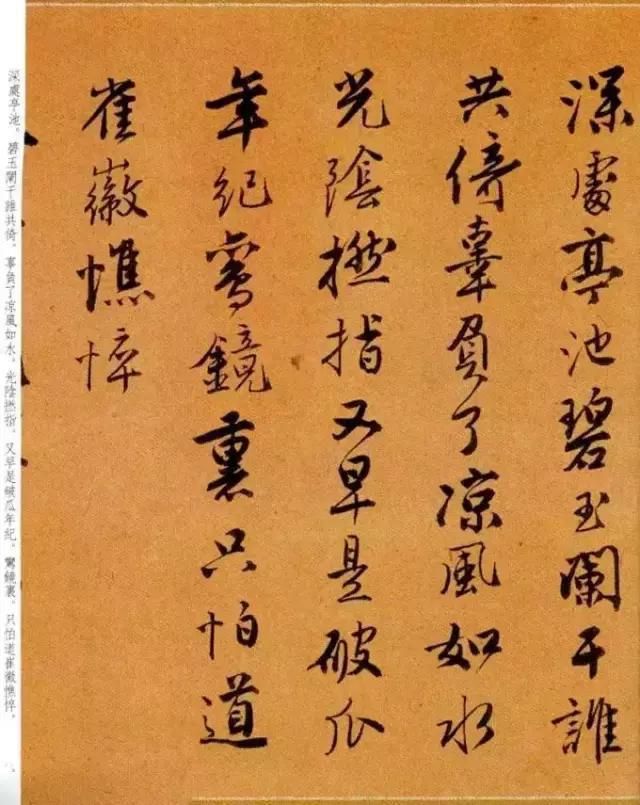 深處亭池碧玉闌干誰
共倚辜負了凉風如水
光陰撚指又早是破瓜
年紀鸞鏡裏只怕道
崔徽憔悴
深處亭池。碧玉闌干誰共倚。辜負了凉風如水。光陰撚指。又早是破瓜年紀。鸞鏡裏。只怕道崔徽憔悴。